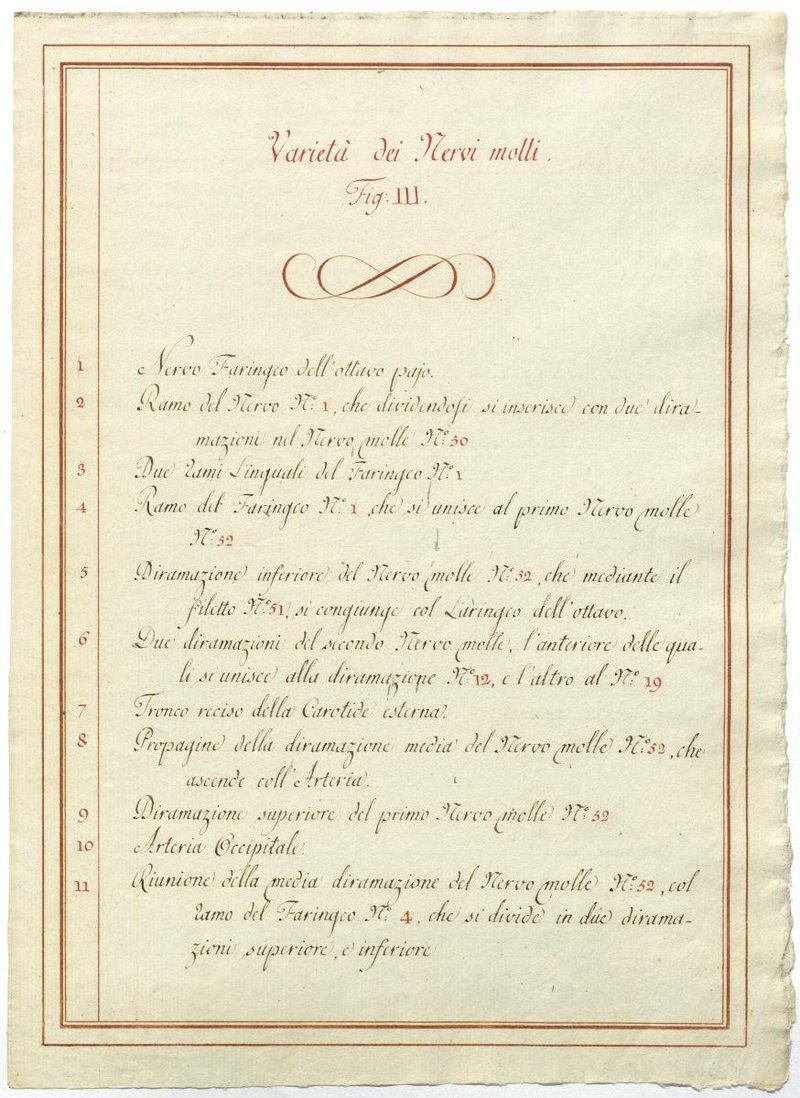 Varietà dei Nervi molli.
Fig: III.
1 Nervo Faringeo dell'ottavo pajo.
2 Ramo del Nervo N.º 1, che dividendosi si inserisce con due dira-
mazioni nel Nervo molle N.º 50
3 Due rami Linguali del Faringeo N.º 1
4 Ramo del Faringeo N.º 1, che si unisce al primo Nervo molle
N.º 52
5 Diramazione inferiore del Nervo molle N.º 52, che mediante il
filetto N.º 51, si congiunge col Laringeo dell'ottavo.
6 Due diramazioni del secondo Nervo molle, l'anteriore delle qua-
li si unisce alla diramazione N.º 12, e l'altro al N.º 19
7 Tronco reciso della Carotide esterna.
8 Propagine della diramazione media del Nervo molle N.º 52, che
ascende coll'Arteria.
9 Diramazione superiore del primo Nervo molle N.º 52
10 Arteria Occipitale.
11 Riunione della media diramazione del Nervo molle N.º 52, col
ramo del Faringeo N.º 4, che si divide in due dirama-
zioni superiore, e inferiore